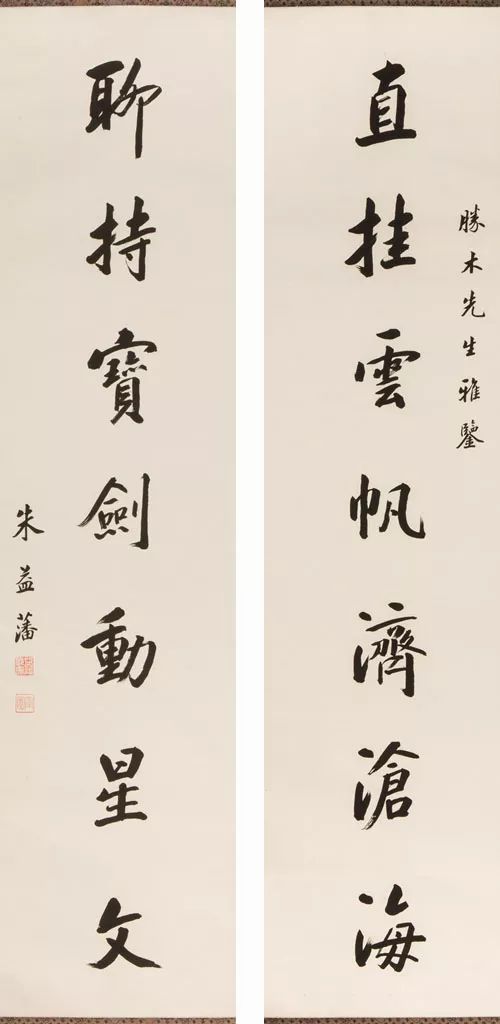 勝木先生雅鑒
直挂雲帆濟滄海
聊持寶劍動星文
朱益藩